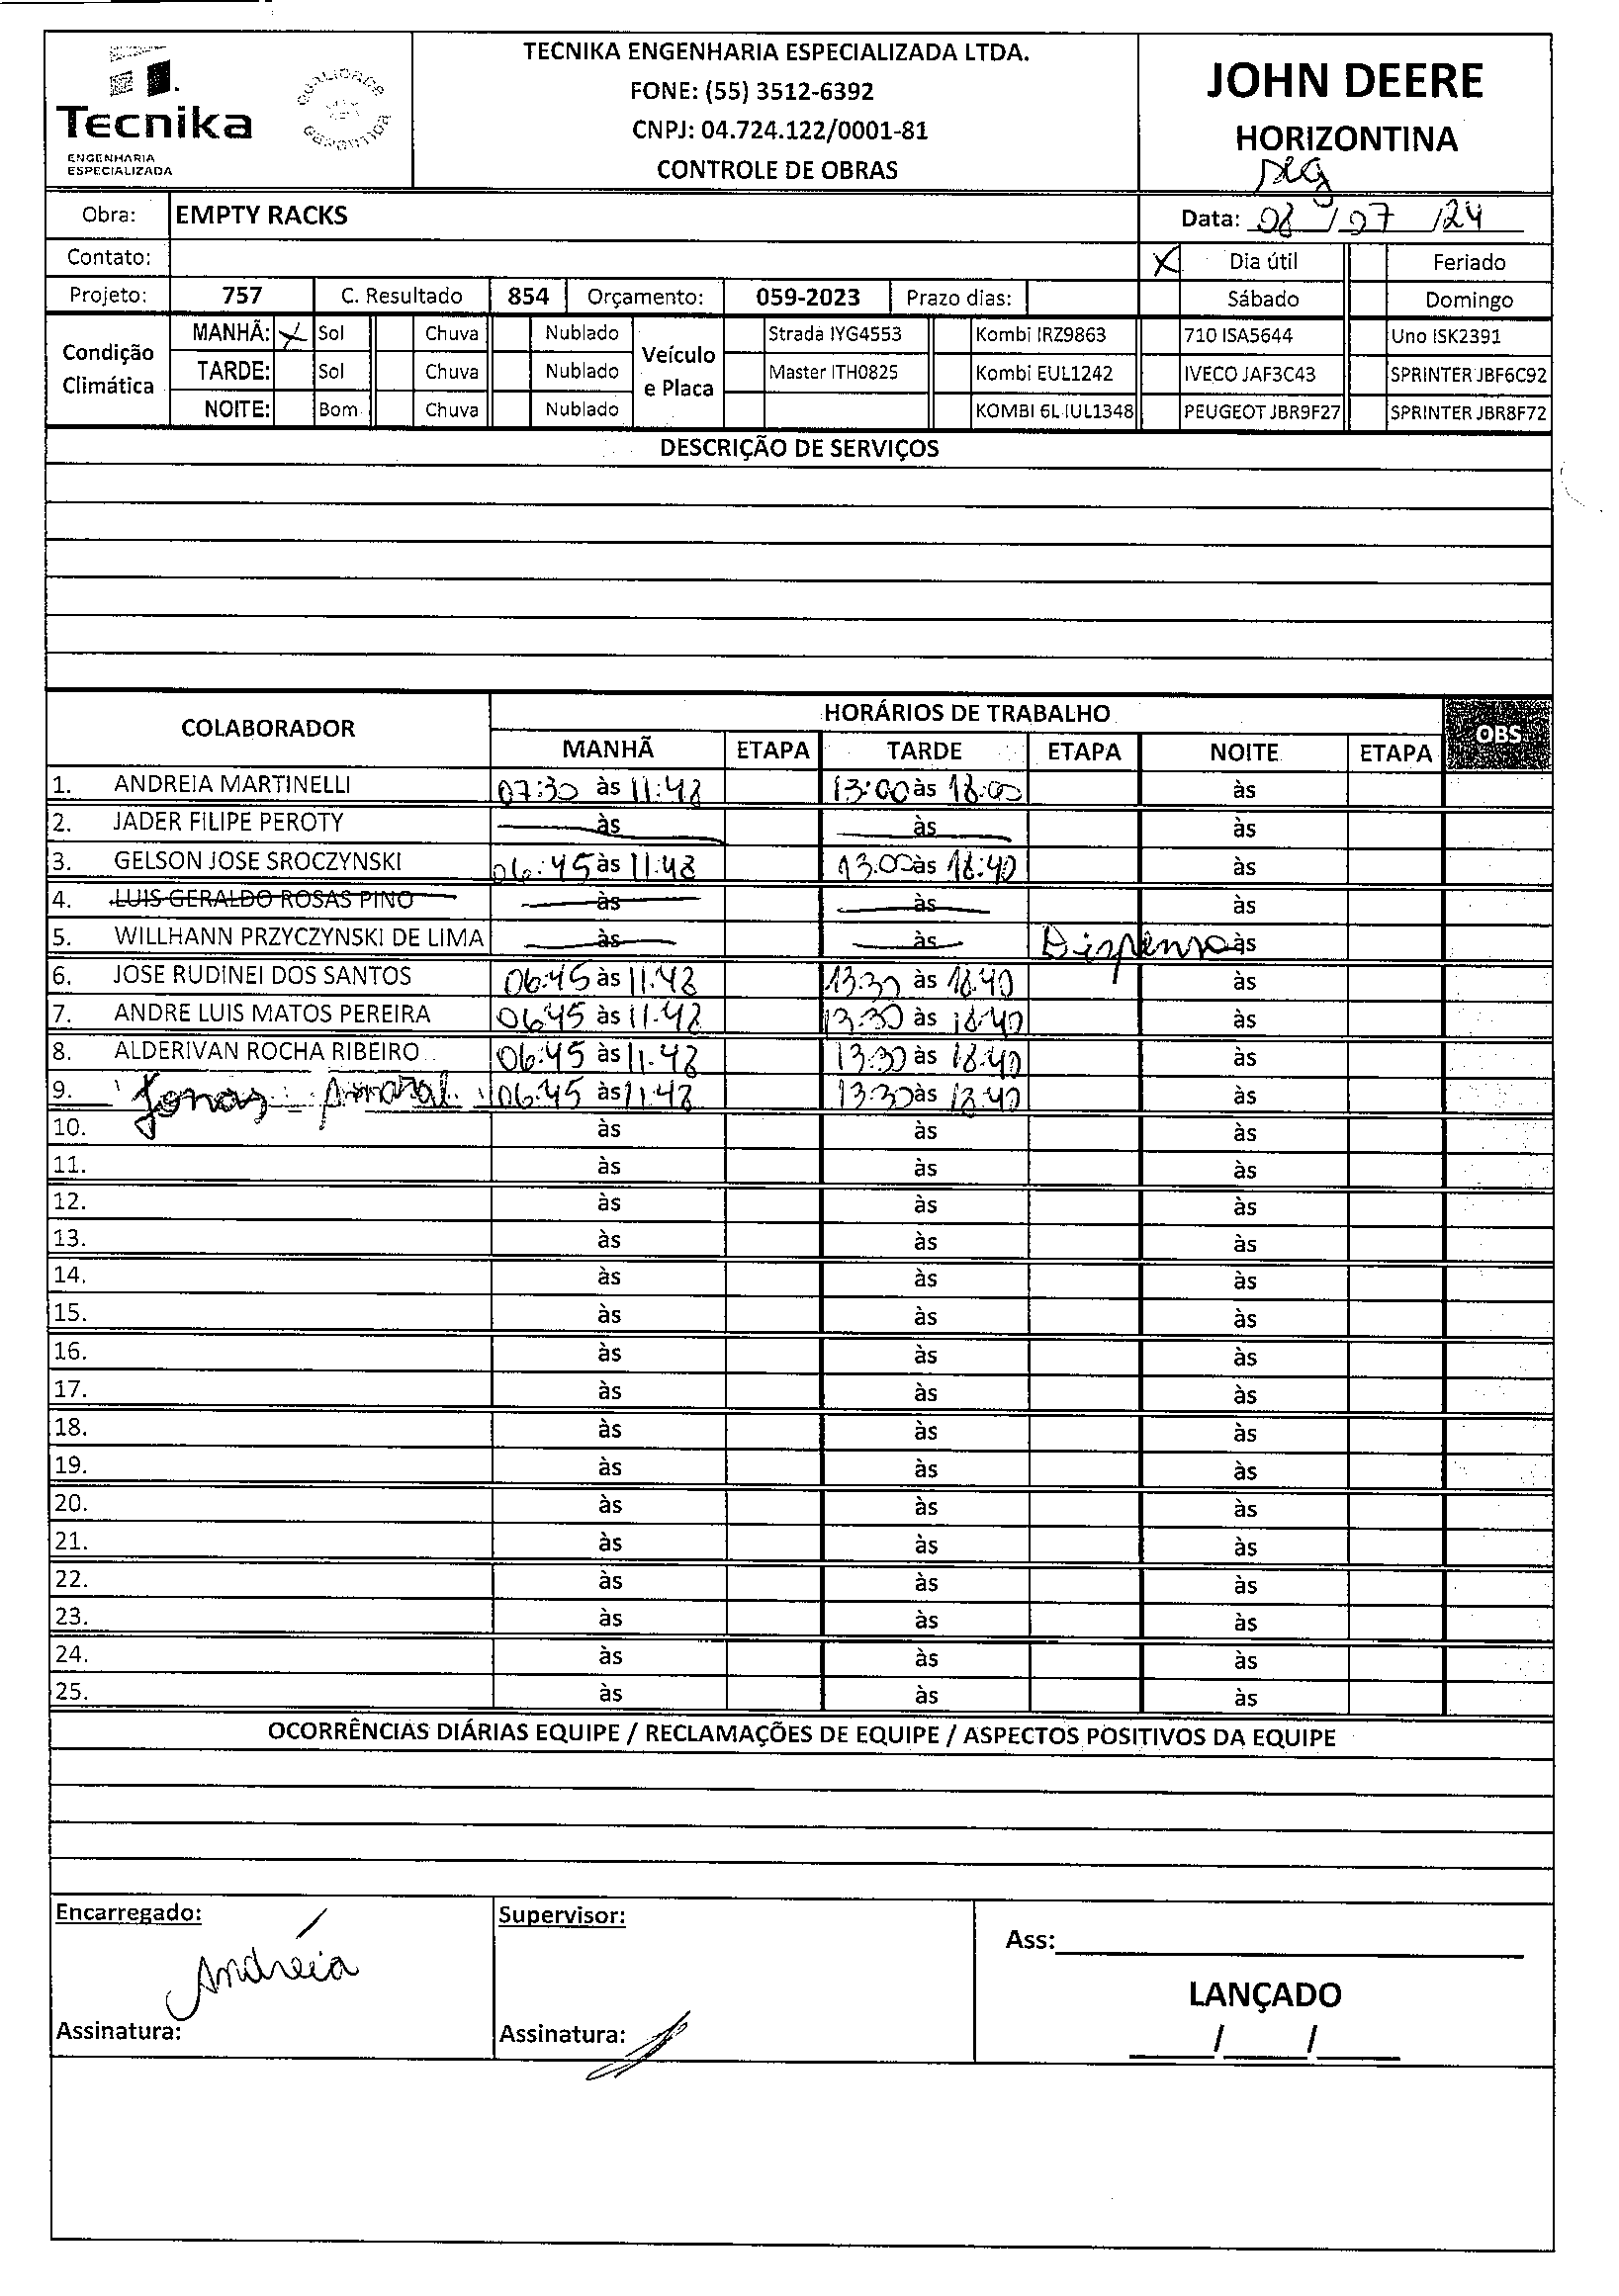 Tecnika
ENGENHARIA
ESPECIALIZADA
QUALIDADE
GARANTIDA
TECNIKA ENGENHARIA ESPECIALIZADA LTDA.
FONE: (55) 3512-6392
CNPJ: 04.724.122/0001-81
CONTROLE DE OBRAS
JOHN DEERE
HORIZONTINA
Obra: EMPTY RACKS Data: 08/07/24
Contato: X Dia útil Feriado
Projeto: 757 C. Resultado 854 Orçamento: 059-2023 Prazo dias: Sábado Domingo
Condição Climática
MANHÃ: X Sol Chuva Nublado
TARDE: Sol Chuva Nublado
NOITE: Bom Chuva Nublado
Veículo e Placa
Strada IYG4553 Kombi IRZ9863 710 ISA5644 Uno ISK2391
Master ITH0825 Kombi EUL1242 IVECO JAF3C43 SPRINTER JBF6C92
KOMBI 6L IUL1348 PEUGEOT JBR9F27 SPRINTER JBR8F72
DESCRIÇÃO DE SERVIÇOS
COLABORADOR HORÁRIOS DE TRABALHO OBS
MANHÃ ETAPA TARDE ETAPA NOITE ETAPA
1. ANDREIA MARTINELLI 07:30 às 11:48 13:00 às 18:00 às
2. JADER FILIPE PEROTY às às às
3. GELSON JOSE SROCZYNSKI 06:45 às 11:48 13:00 às 18:40 às
4. LUIS GERALDO ROSAS PINO às às às
5. WILLHANN PRZYCZYNSKI DE LIMA às às Dispensa às
6. JOSE RUDINEI DOS SANTOS 06:45 às 11:48 13:30 às 18:40 às
7. ANDRE LUIS MATOS PEREIRA 06:45 às 11:48 13:30 às 18:40 às
8. ALDERIVAN ROCHA RIBEIRO 06:45 às 11:48 13:30 às 18:40 às
9. Jonas Amaral 06:45 às 11:48 13:30 às 18:40 às
10. às às às
11. às às às
12. às às às
13. às às às
14. às às às
15. às às às
16. às às às
17. às às às
18. às às às
19. às às às
20. às às às
21. às às às
22. às às às
23. às às às
24. às às às
25. às às às
OCORRÊNCIAS DIÁRIAS EQUIPE / RECLAMAÇÕES DE EQUIPE / ASPECTOS POSITIVOS DA EQUIPE
Encarregado: Supervisor: Ass:
Andréia
LANÇADO
Assinatura: Assinatura: / /